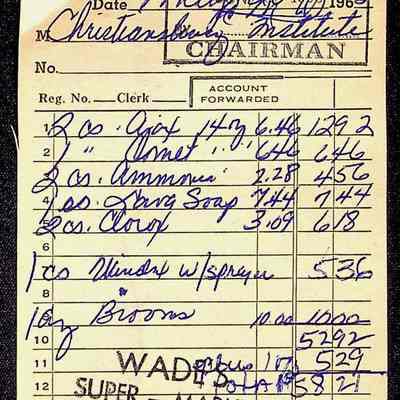 Date 196
M Christiansburg Institute
CHAIRMAN
No.
Reg. No. Clerk ACCOUNT FORWARDED
1 2 cs. Ajax 14 oz 6.46 12 92
2 1 " Comet " " 646 6 46
3 2 cs. Ammonia 2.28 4 56
4 1 cs. Lava Soap 7.44 7 44
5 2 cs. Clorox 3.09 6 18
6
1 cs Windex w/sprayer 5 36
8
1 dz Brooms 10.00 10 00
10 52 92
11 plus 10% 5 29
12 Total 58 21
WADE'S
SUPER MARK